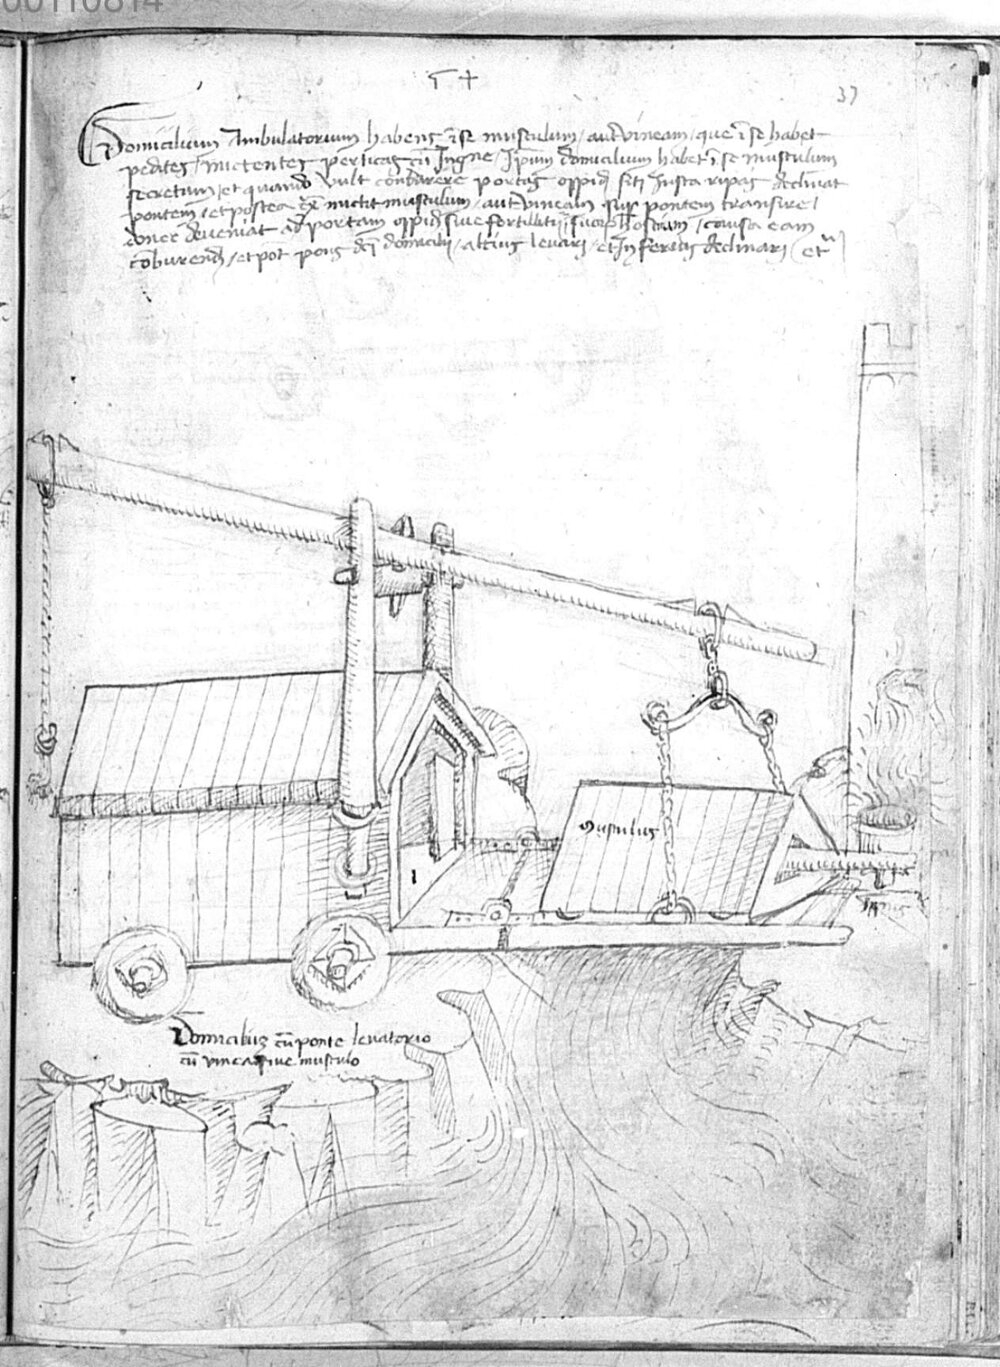 00110814
37
Domicilium Ambulatorium habens ī se musculum / aut vineam / que ī se habet
pedites / mictentes perticas cū Ingne / Ipsum domicilium habet ī se musculum
secretum / et quando vult conbarere portas oppidi siti Iusta ripas declinat
pontem / et postea mictit musculum / aut vineam sup pontem transire /
donec deveniat ad portam oppidi sive fortilitii / causa eam
cōburendi / et pot pons dci domicilii / altius levari / et Inferius declinari / et
musculus
Ignis
Domicilius cū ponte levatorio
cū vinea sive musculo